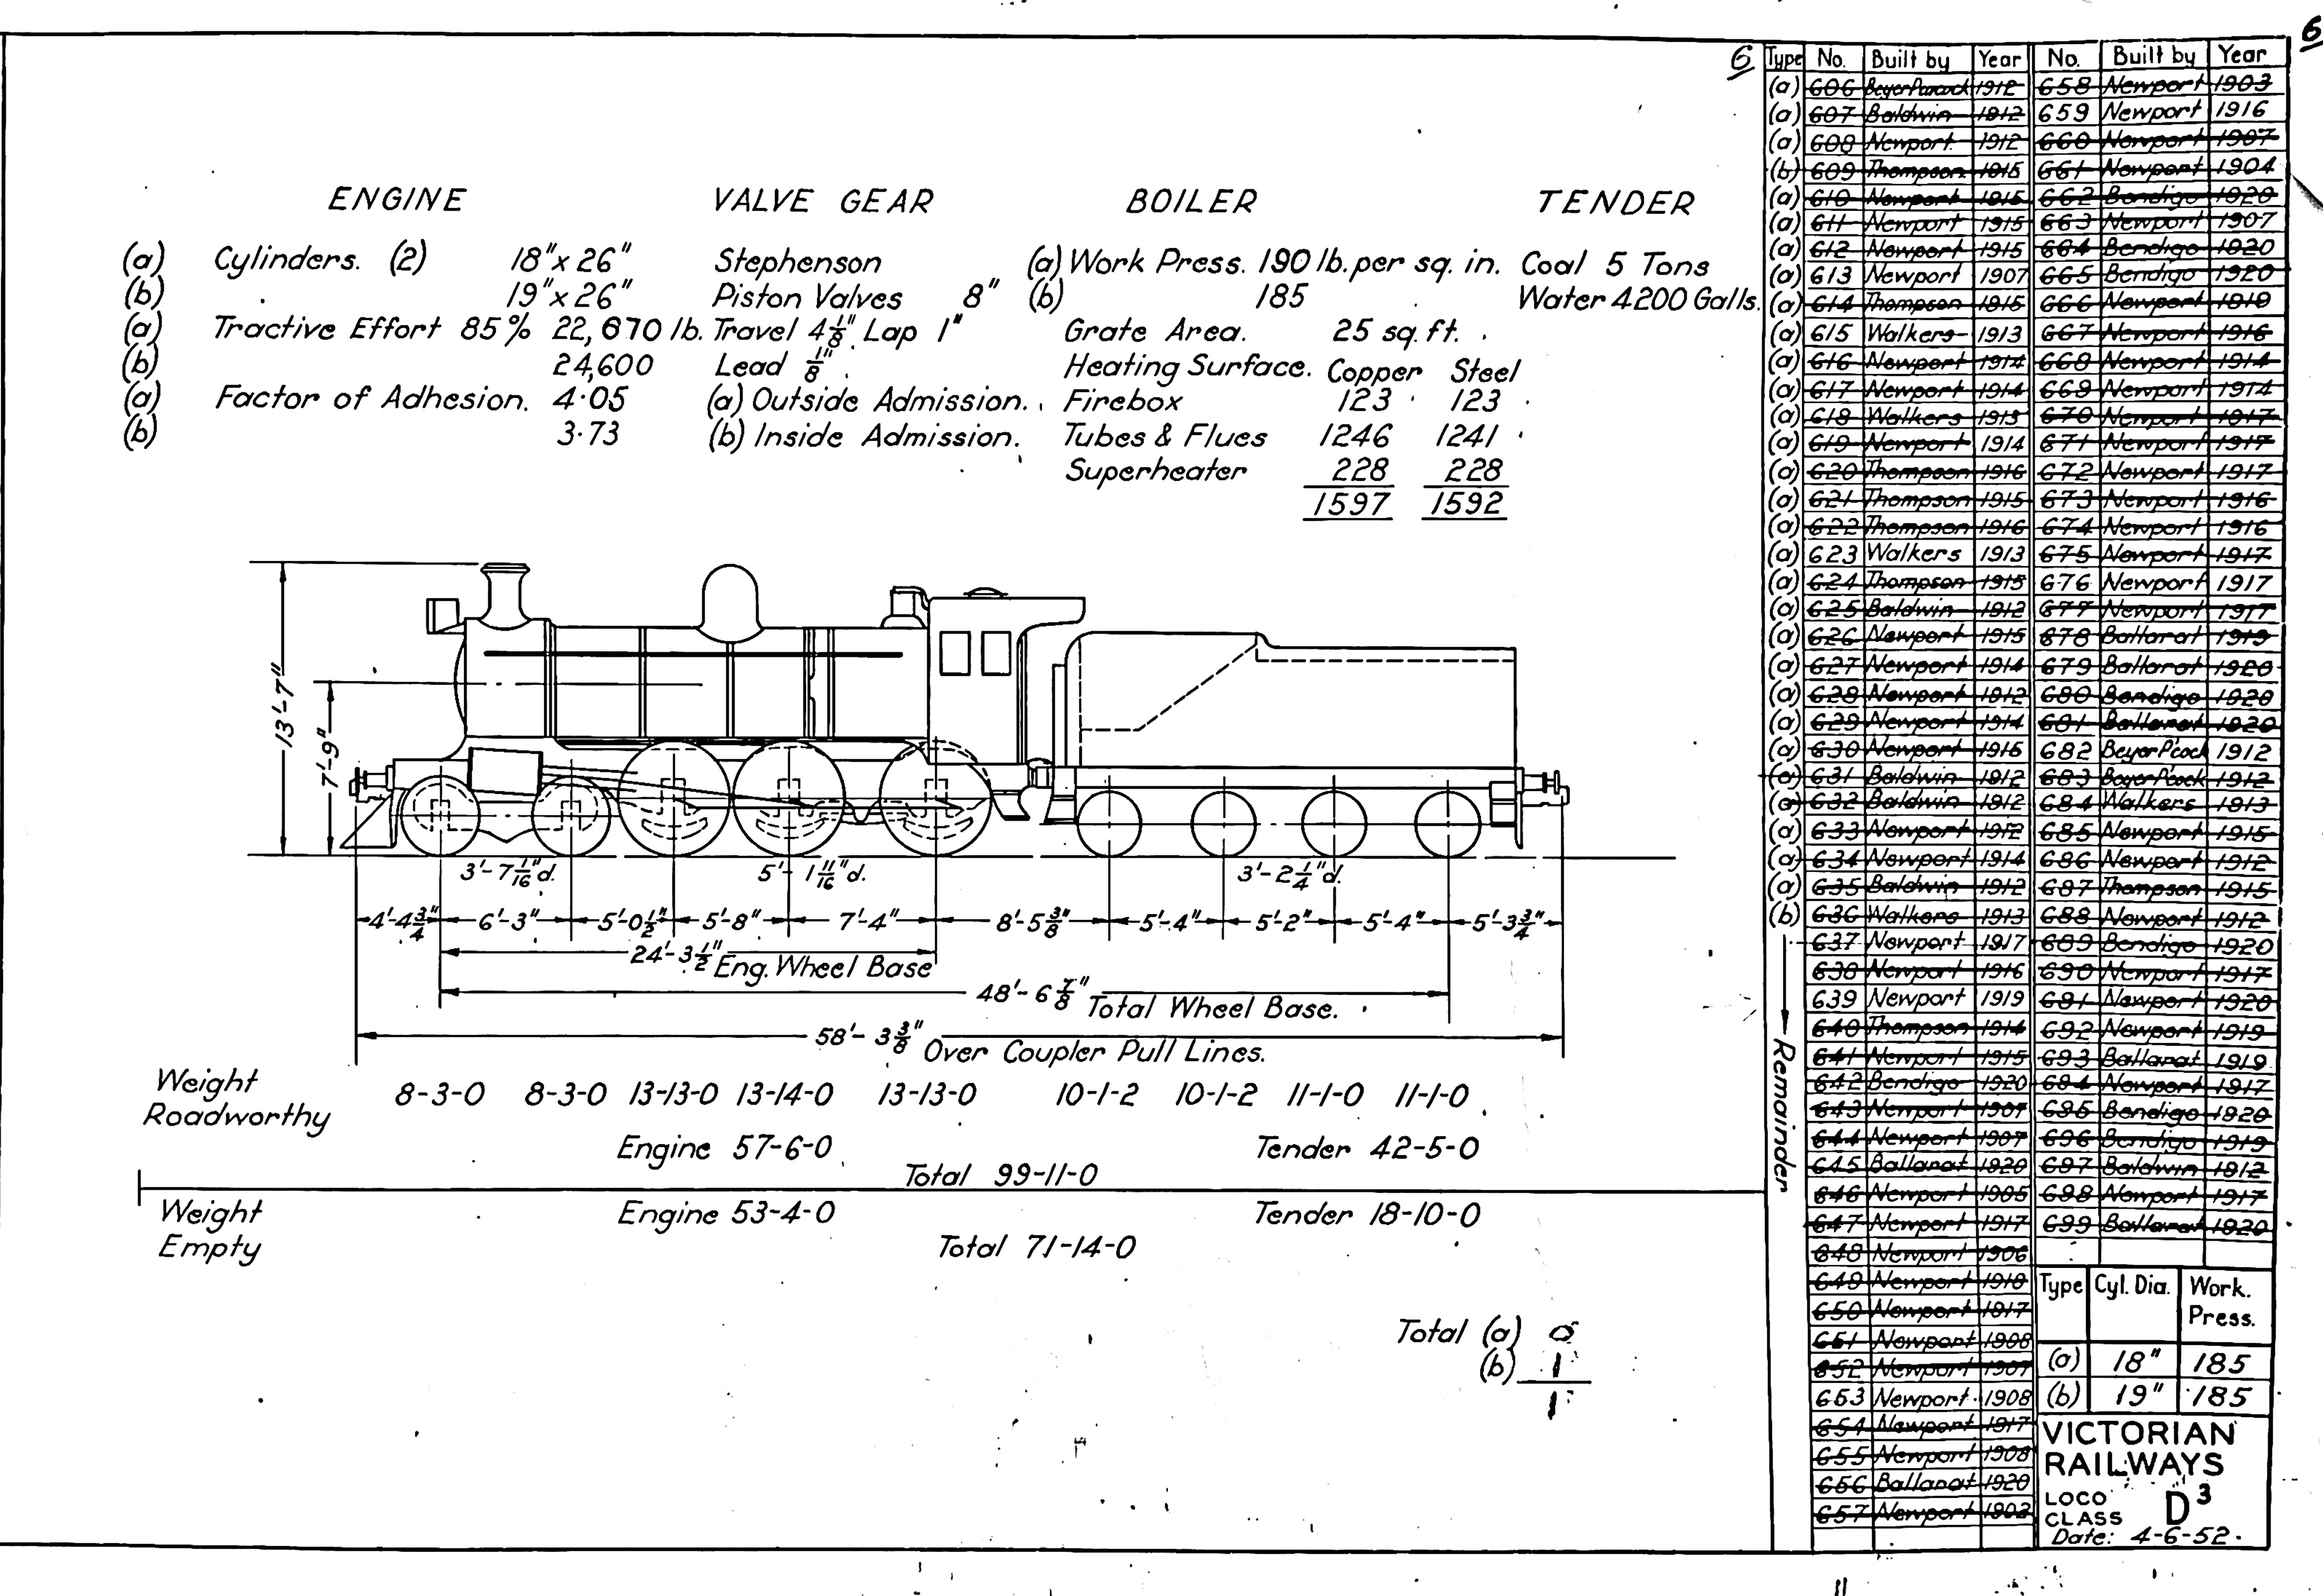 6
6
ENGINE VALVE GEAR BOILER TENDER
(a) Cylinders. (2) 18"x 26" Stephenson (a) Work Press. 190 lb. per sq. in. Coal 5 Tons
(b) 19"x 26" Piston Valves 8" (b) 185 Water 4200 Galls.
(a) Tractive Effort 85% 22,670 lb. Travel 4 1/8" Lap 1" Grate Area. 25 sq. ft.
(b) 24,600 Lead 1/8" Heating Surface. Copper Steel
(a) Factor of Adhesion. 4·05 (a) Outside Admission. Firebox 123 123
(b) 3·73 (b) Inside Admission. Tubes & Flues 1246 1241
Superheater 228 228
1597 1592
13'-7"
7'-9"
3'-7 1/16"d. 5'-1 11/16"d. 3'-2 1/4"d.
4'-4 3/4" 6'-3" 5'-0 1/2" 5'-8" 7'-4" 8'-5 3/8" 5'-4" 5'-2" 5'-4" 5'-3 3/4"
24'-3 1/2" Eng. Wheel Base
48'-6 7/8" Total Wheel Base.
58'-3 3/8" Over Coupler Pull Lines.
Weight
Roadworthy
8-3-0 8-3-0 13-13-0 13-14-0 13-13-0 10-1-2 10-1-2 11-1-0 11-1-0
Engine 57-6-0 Tender 42-5-0
Total 99-11-0
Weight
Empty
Engine 53-4-0 Tender 18-10-0
Total 71-14-0
Total (a) 0
(b) 1
1
Type No. Built by Year No. Built by Year
(a) 606 Beyer Peacock 1912 658 Newport 1903
(a) 607 Baldwin 1912 659 Newport 1916
(a) 608 Newport 1912 660 Newport 1907
(b) 609 Thompson 1915 661 Newport 1904
(a) 610 Newport 1915 662 Bendigo 1920
(a) 611 Newport 1915 663 Newport 1907
(a) 612 Newport 1915 664 Bendigo 1920
(a) 613 Newport 1907 665 Bendigo 1920
(a) 614 Thompson 1915 666 Newport 1919
(a) 615 Walkers 1913 667 Newport 1916
(a) 616 Newport 1914 668 Newport 1914
(a) 617 Newport 1914 669 Newport 1914
(a) 618 Walkers 1913 670 Newport 1917
(a) 619 Newport 1914 671 Newport 1917
(a) 620 Thompson 1916 672 Newport 1917
(a) 621 Thompson 1915 673 Newport 1916
(a) 622 Thompson 1916 674 Newport 1916
(a) 623 Walkers 1913 675 Newport 1917
(a) 624 Thompson 1915 676 Newport 1917
(a) 625 Baldwin 1912 677 Newport 1917
(a) 626 Newport 1915 678 Ballarat 1919
(a) 627 Newport 1914 679 Ballarat 1920
(a) 628 Newport 1912 680 Bendigo 1920
(a) 629 Newport 1914 681 Ballarat 1920
(a) 630 Newport 1915 682 Beyer P'cock 1912
(a) 631 Baldwin 1912 683 Beyer P'cock 1912
(a) 632 Baldwin 1912 684 Walkers 1913
(a) 633 Newport 1912 685 Newport 1915
(a) 634 Newport 1914 686 Newport 1912
(a) 635 Baldwin 1912 687 Thompson 1915
(b) 636 Walkers 1913 688 Newport 1912
637 Newport 1917 689 Bendigo 1920
638 Newport 1916 690 Newport 1917
639 Newport 1919 691 Newport 1920
640 Thompson 1914 692 Newport 1919
641 Newport 1915 693 Ballarat 1919
642 Bendigo 1920 694 Newport 1917
643 Newport 1907 695 Bendigo 1920
644 Newport 1907 696 Bendigo 1919
645 Ballarat 1920 697 Baldwin 1912
646 Newport 1905 698 Newport 1917
647 Newport 1917 699 Ballarat 1920
648 Newport 1906
649 Newport 1918
650 Newport 1917
651 Newport 1908
652 Newport 1907
653 Newport 1908
654 Newport 1917
655 Newport 1908
656 Ballarat 1920
657 Newport 1903
Remainder
Type Cyl. Dia. Work. Press.
(a) 18" 185
(b) 19" 185
VICTORIAN
RAILWAYS
LOCO CLASS D3
Date: 4-6-52.